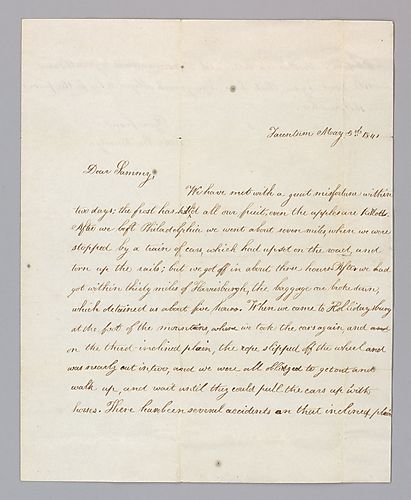 Taunton May 5th 1841
Dear Sammy,
We have met with a great misfortune within
two days; the frost has killed all our fruit, even the apples are killed.
After we left Philadelphia we went about seven miles, when we were
stopped by a train of cars, which had upset on the road, and
torn up the rails; but we got off in about three hours. After we had
got within thirty miles of Harrisburgh, the baggage car broke down,
which detained us about five hours. When we came to Hollidaysburg
at the foot of the mountains, where we took the cars again, and
on the third inclined plain, the rope slipped off the wheel and
was nearly cut in two, and we were all obliged to get out and
walk up, and wait until they could pull the cars up with
horses. There have been several accidents on that inclined plain